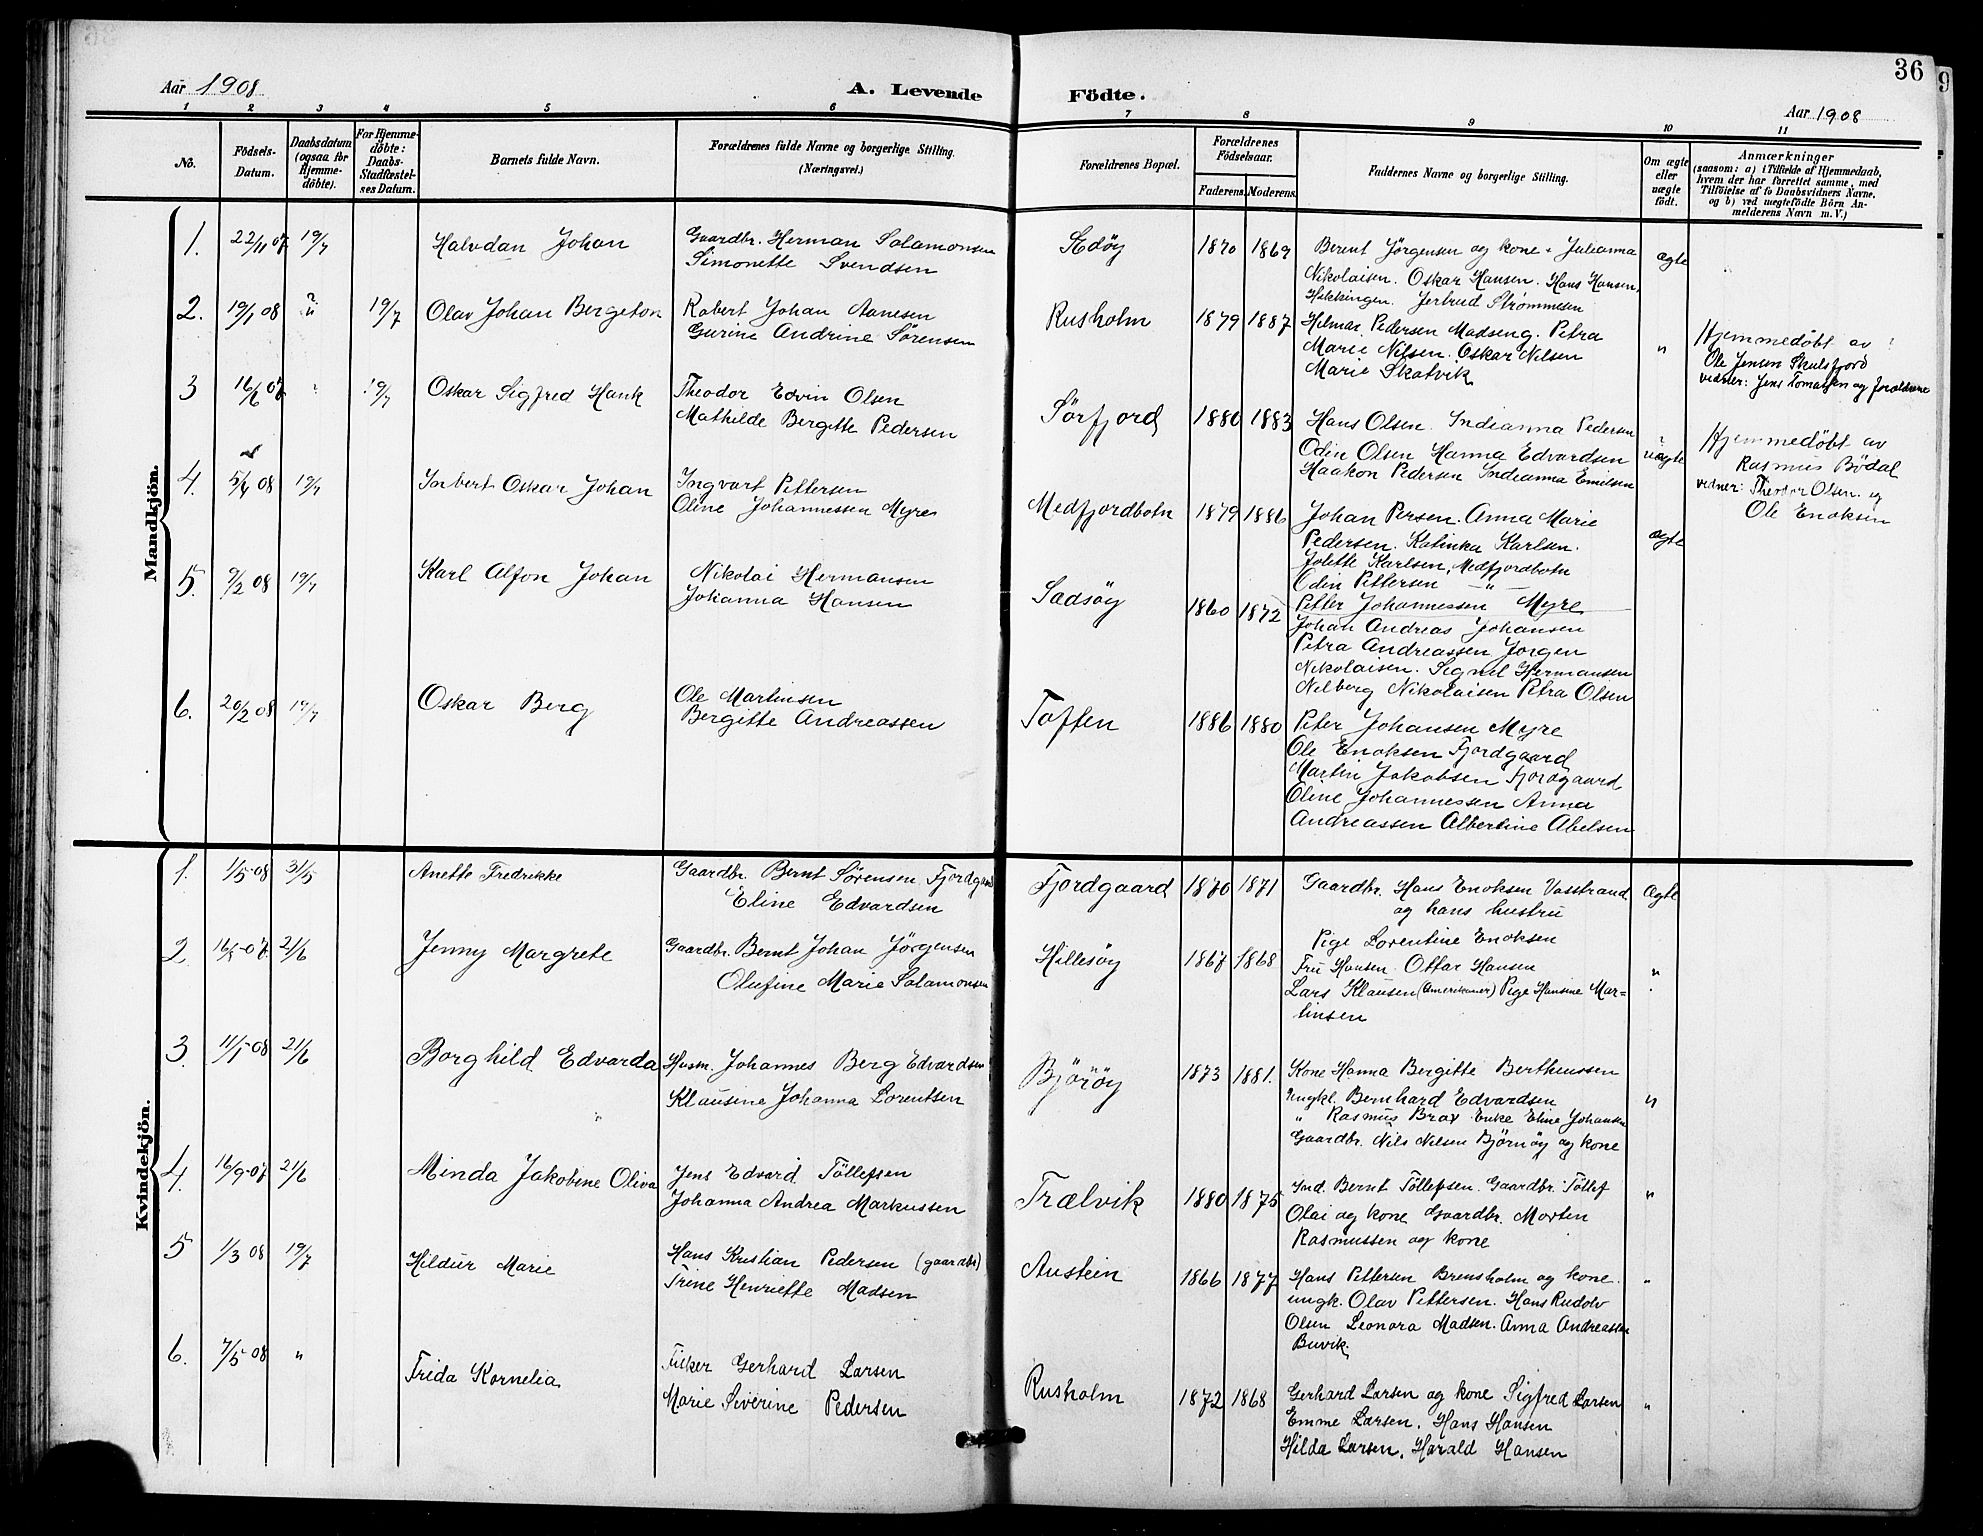 36
Aar 1908
A. Levende Födte.
Aar 1908
1 2 3 4 5 6 7 8 9 10 11
No.
Födsels-Datum.
Daabsdatum (ogsaa för Hjemme-döbte).
For Hjemme-döbte: Daabs-Stadfæstel-ses Datum.
Barnets fulde Navn.
Forældrenes fulde Navne og borgerlige Stilling. (Næringsvei.)
Forældrenes Bopæl.
Forældrenes Födselsaar.
Faderens. Moderens.
Faddernes Navne og borgerlige Stilling.
Om ægte eller uægte födt.
Anmærkninger
(saasom: a) i Tilfælde af Hjemmedaab,
hvem der har forrettet samme, med
Tilföielse af to Daabsvidners Navne.
og b) ved uegtefödte Börn An-
melderens Navn m. V.)
Mandkjön.
1. 22/11 07 19/7 Halvdan Johan
Gaardbr. Herman Salamonsen
Simonette Svendsen
Edøy 1870 1869
Berent Jørgensen og kone. Julianna
Nikolaisen. Oskar Hansen. Hans Hansen,
Hekkingen. Jertrud Strømmesen
ægte
2. 19/1 08 19/7 Olav Johan Bergeton
Robert Johan Aanesen
Gurine Andrine Sørensen
Rusholm 1879 1887
Hilmar Pedersen Madseng. Petra
Marie Nilsen. Oskar Nilsen
Marie Skatvik
"
Hjemmedøbt av
Ole Jensen Skulsfjord
vidner: Jens Tomassen og forældrene
3 16/6 07 19/7 Oskar Sigfred Hank
Theodor Edvin Olsen
Mathilde Bergitte Pedersen
Sörfjord 1880 1883
Hans Olsen. Indianna Pedersen
Odin Olsen Hanna Edvardsen
Haakon Pedersen Indianna Emelsen
uægte
Hjemmedøbt av
Rasmus Bødal
vidner: Theodor Olsen og
Ole Enoksen
4. 5/4 08 19/7 Inbert Oskar Johan
Ingvart Pettersen
Oline Johannessen Myre
Medfjordbotn 1879 1886
Johan Persen. Anna Marie
Pedersen. Katinka Karlsen.
Jolette Karlsen, Medfjordbotn
Odin Pettersen — " —
Petter Johannessen Myre
ægte
5. 9/2 08 19/7 Karl Alfon Johan
Nikolai Hermansen
Johanna Hansen
Sadsøy 1860 1872
Johan Andreas Johansen
Petra Andreassen Jorgen
Nikolaisen. Signel Hermansen
Nilberg Nikolaisen Petra Olsen
6. 20/2 08 19/7 Oskar Berg
Ole Martinsen
Bergitte Andreassen
Toften 1886 1880
Peter Johansen Myre
Ole Enoksen Fjordgaard
Martin Jakobsen Fjordgaard
Oline Johannessen Anna
Andreassen Albertine Abelsen
Kvindekjön.
1. 1/5-08 31/5 Anette Fredrikke
Gaardbr. Bernt Sörensen Fjordgaard
Eline Edvardsen
Fjordgaard 1870 1871
Gaardbr. Hans Enoksen Vasstrand
og hans hustru
Pige Lorentine Enoksen
Ægte
2 21/6 Jenny Margrete
Gaardbr. Bernt Johan Jørgensen
Olufine Marie Salamonsen
Hillesöy 1867 1868
Fru Hansen. Ottar Hansen
Lars Klausen (Amerikaner) Pige Hansine Mar=
tinsen
"
3. 11/1-08 21/6 Borghild Edvarda
Husm. Johannes Berg Edvardsen
Klausine Johanna Lorentsen
Björöy 1873 1881.
Kone Hanna Bergitte Bertheussen
Ungkl. Bernhard Edvardsen
" Rasmus Brox Enke Eline Johansen
Gaardbr. Nils Nilsen Bjørnøy og kone
"
4. 16/9-07 21/6 Minda Jakobine Oliva
Jens Edvard Töllefsen
Johanna Andrea Markussen
Trælvik 1880 1875
Ind. Bernt Töllefsen. Gaardbr. Töllef
Olai og kone Gaardbr. Morten
Rasmussen og kone
"
5 1/3 08 19/7 Hildur Marie
Hans Kristian Pedersen (gaardbr)
Trine Henriette Madsen
Austein 1866 1877
Hans Pettersen Brensholm og kone.
ungk. Olav Pettersen. Hans Rudolv
Olsen Leonora Madsen. Anna Andreassen
Buvik.
"
6. 7/5 08 " Frida Kornelia
Fisker Gerhard Larsen
Marie Siverine Pedersen
Rusholm 1872 1868
Gerhard Larsen og kone Sigfred Larsen
Emme Larsen. Hans Hansen
Hilda Larsen. Harald Hansen
"